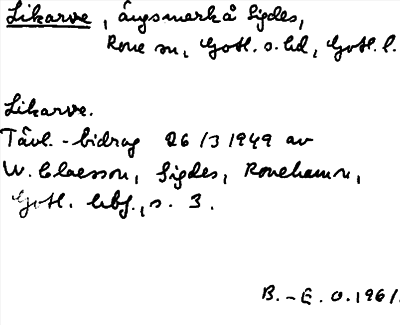 Likarve, ängsmark å Sigdes,
Rone sn, Gotl. s. hd, Gotl. l.
Likarve.
Tävl.-bidrag 26/3 1949 av
W. Claesson, Sigdes, Ronehamn,
Gotl. s. 3.
B.-E. O. 1961.